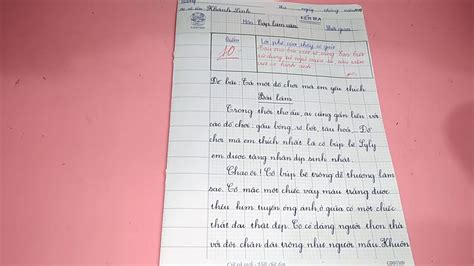 Khánh Linh
KIỂM TRA
Môn: Tập làm văn
Thời gian:
Điểm
Lời phê của thầy cô giáo
10
Đề bài: Tả một đồ chơi mà em yêu thích
Bài làm
Trong thời thơ ấu, ai cũng gắn liền với
các đồ chơi: gấu bông, rô bốt, tàu hoả... Đồ
chơi mà em thích nhất là cô búp bê Lyly
em được tặng nhân dịp sinh nhật.
Chao ôi! Cô búp bê trông dễ thương làm
sao. Cô mặc một chiếc váy màu trắng được
thêu kim tuyến óng ánh, ở giữa có một chiếc
thắt đai thật đẹp. Cô có dáng người thon thả
với đôi chân dài trông như người mẫu. Khuôn